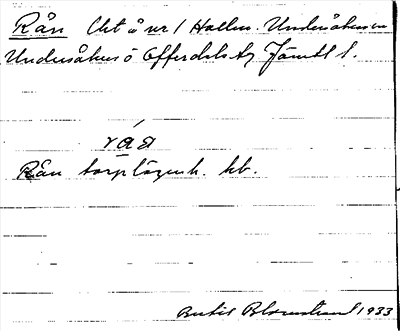 Rån Cht å nr 1 Hallen. Undersåkers sn
Undersåkers o Offerdals tg Jämtl l.
råɑ
Rån torplägenh. kb.
Bertil Blomstrand 1933